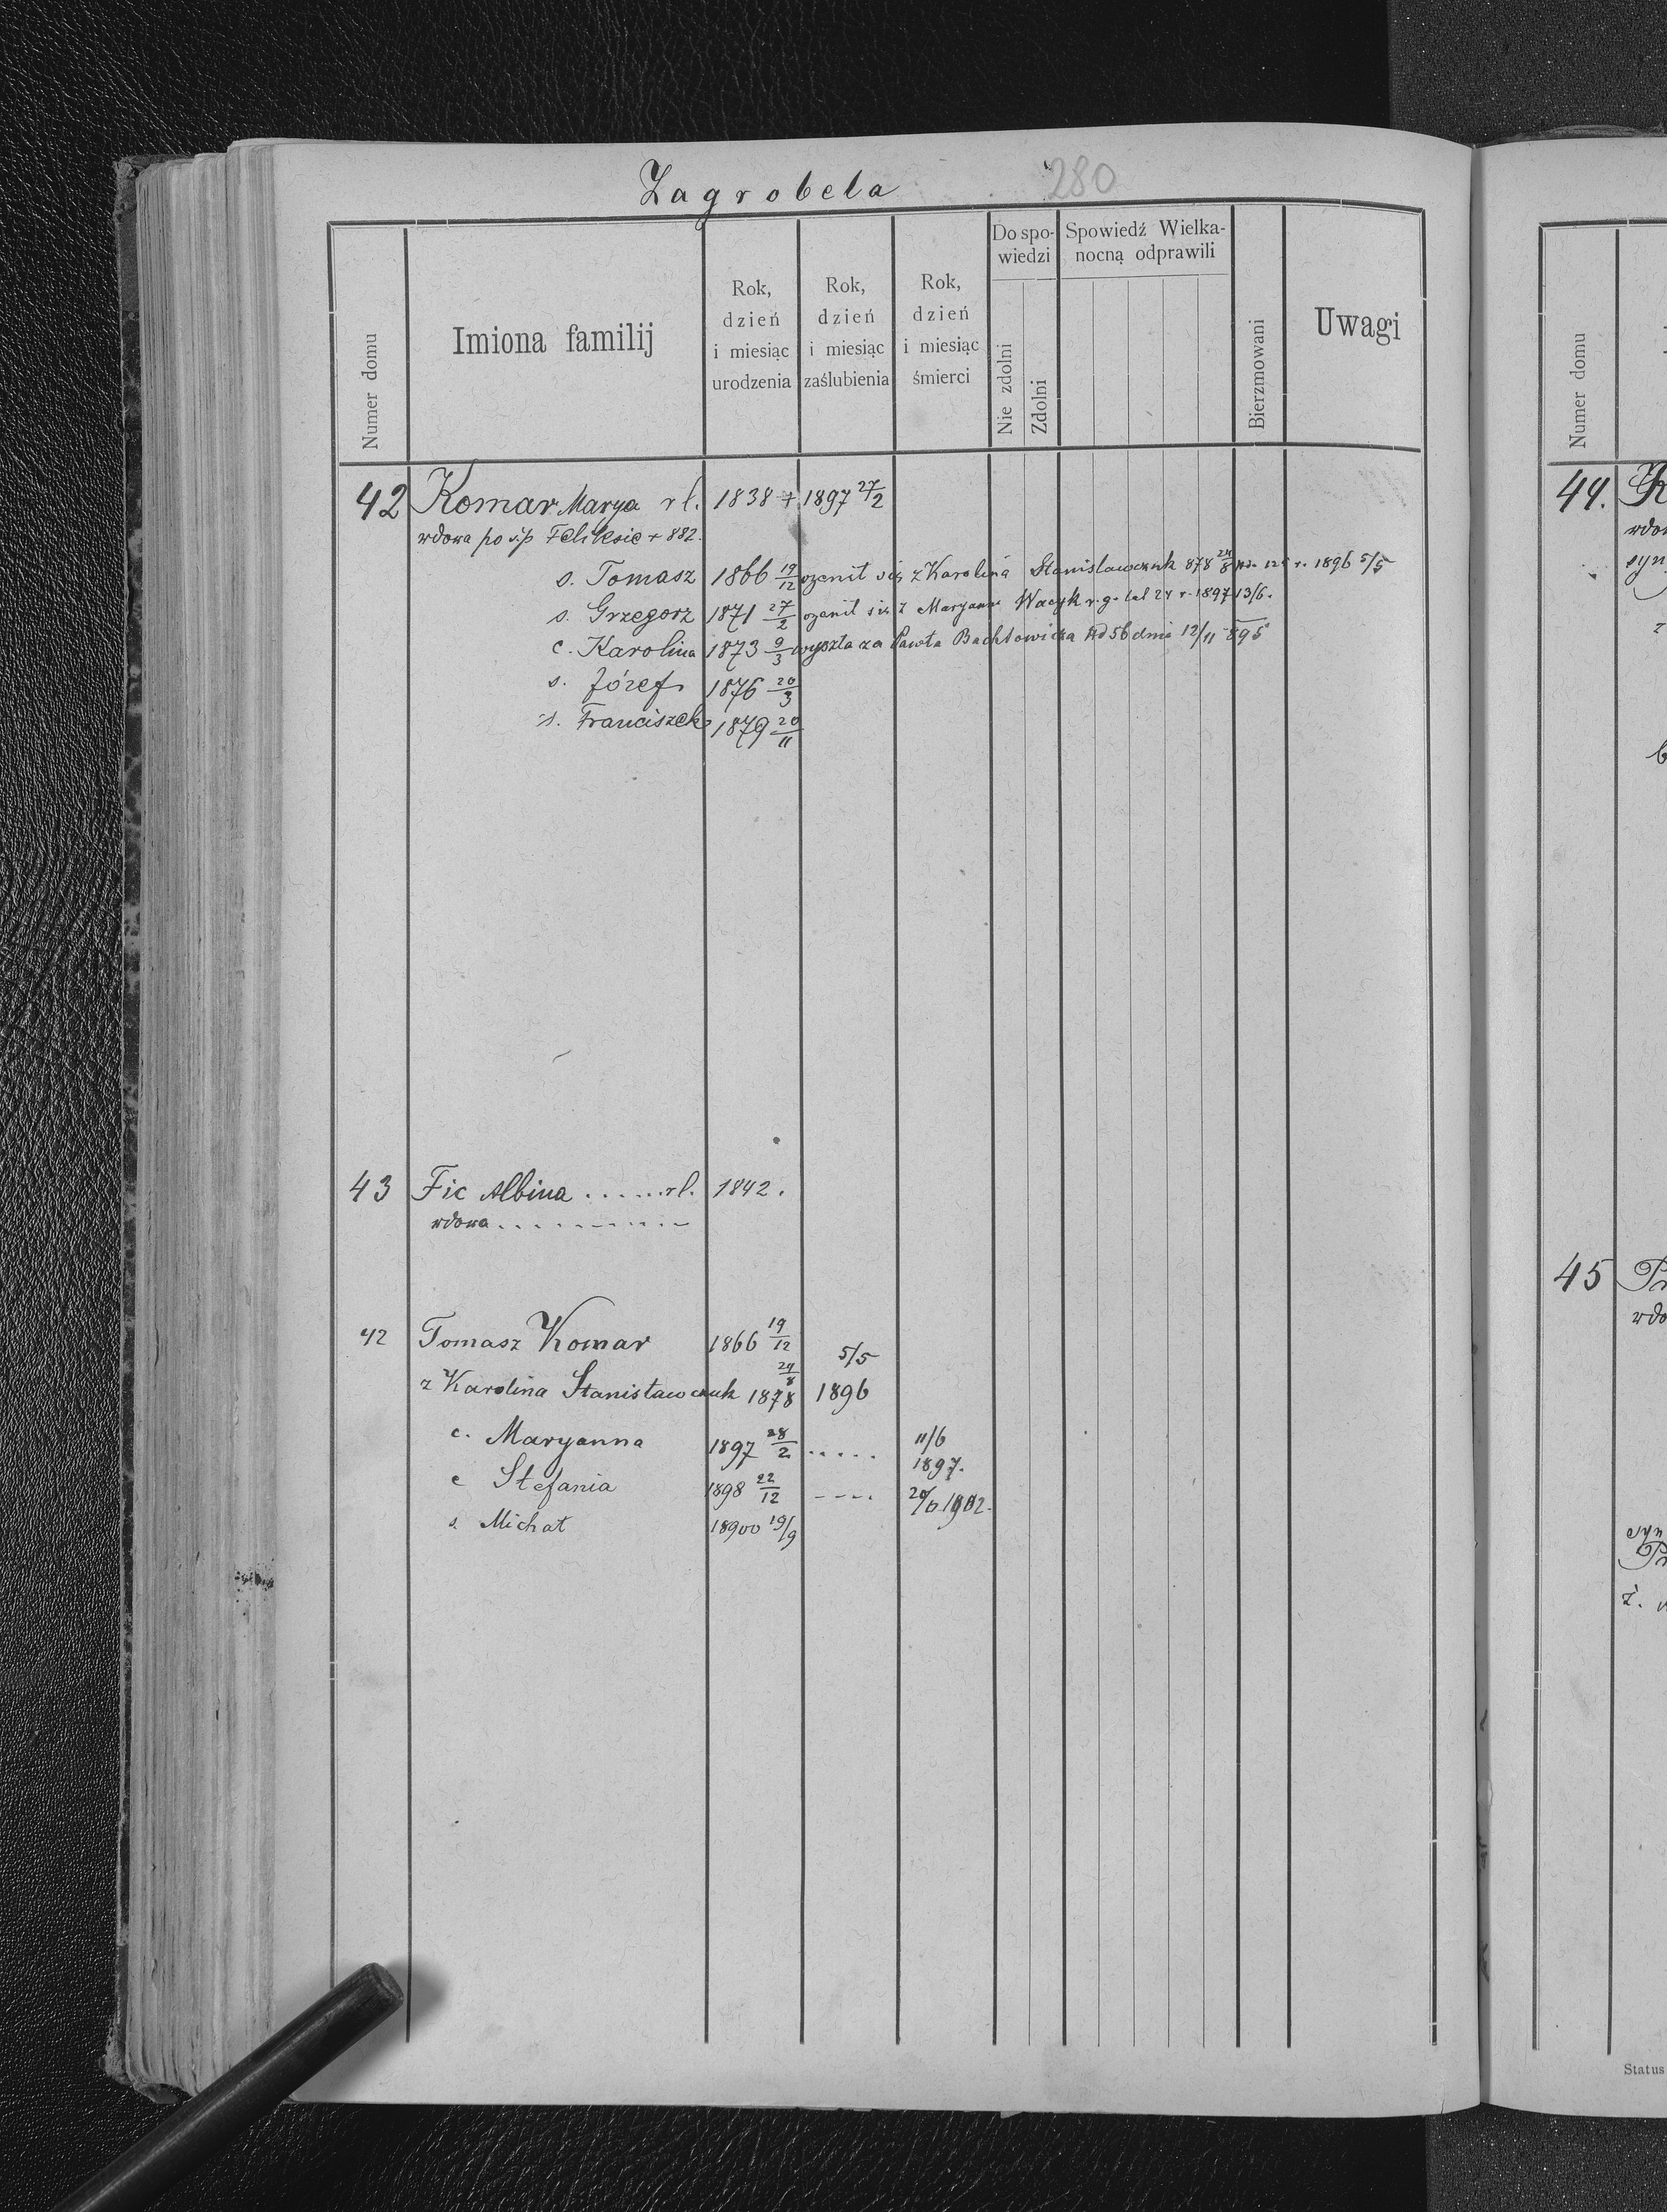 Zagrobela 280
Numer domu
Imiona familij
Rok, dzień i miesiąc urodzenia
Rok, dzień i miesiąc zaślubienia
Rok, dzień i miesiąc śmierci
Do spowiedzi
Nie zdolni
Zdolni
Spowiedź Wielkanocną odprawili
Bierzmowani
Uwagi
42 Komar Marya rl. 1838 + 1897 27/2
wdowa po ś.p Feliksie + 882.
s. Tomasz 1866 19/12 ożenił się z Karoliną Stanisławczuk 878 24/8 r. 1896 5/5
s. Grzegorz 1871 27/2 ożenił się z Maryanną Wacyk r.g. lat 24 r. 1897 13/6.
c. Karolina 1873 9/3 wyszła za Pawła Bachłowicza Nd 56 dnia 12/11 895
s. Józef 1876 20/3
s. Franciszek 1879 20/11
43 Fic Albina ...... rl. 1842.
wdowa
42 Tomasz Komar 1866 19/12 5/5
z Karolina Stanisławczuk 1878 24/8 1896
c. Maryanna 1897 28/2 ..... 11/6 1897.
c Stefania 1898 22/12 ---- 1902.
s. Michał 18900 19/9
Numer domu
44.
45
Status